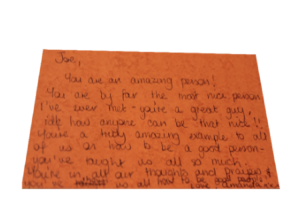 Joe,
You are an amazing person!
You are by far the most nice person
I've ever met - you're a great guy,
idk how anyone can be that nice!!
You're a truly amazing example to all
of us on how to be a good person -
you've taught us all so much
You're in all our thoughts and prayers &
you've us all how to be